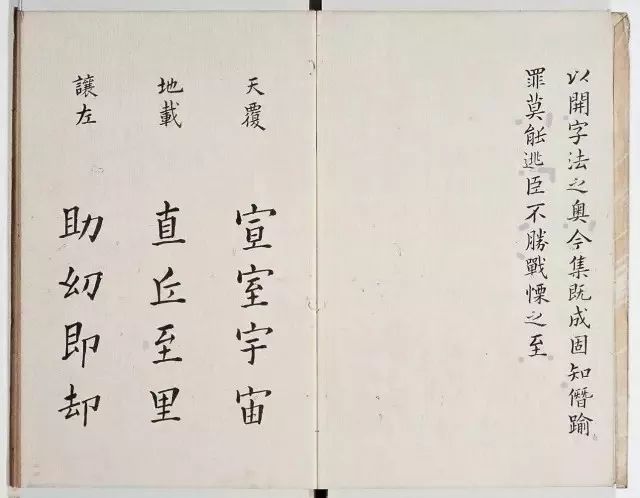 以開字法之奧今集既成固知僭踰
罪莫能逃臣不勝戰慄之至
天覆
宣室宇宙
地載
直丘至里
讓左
助幼即却